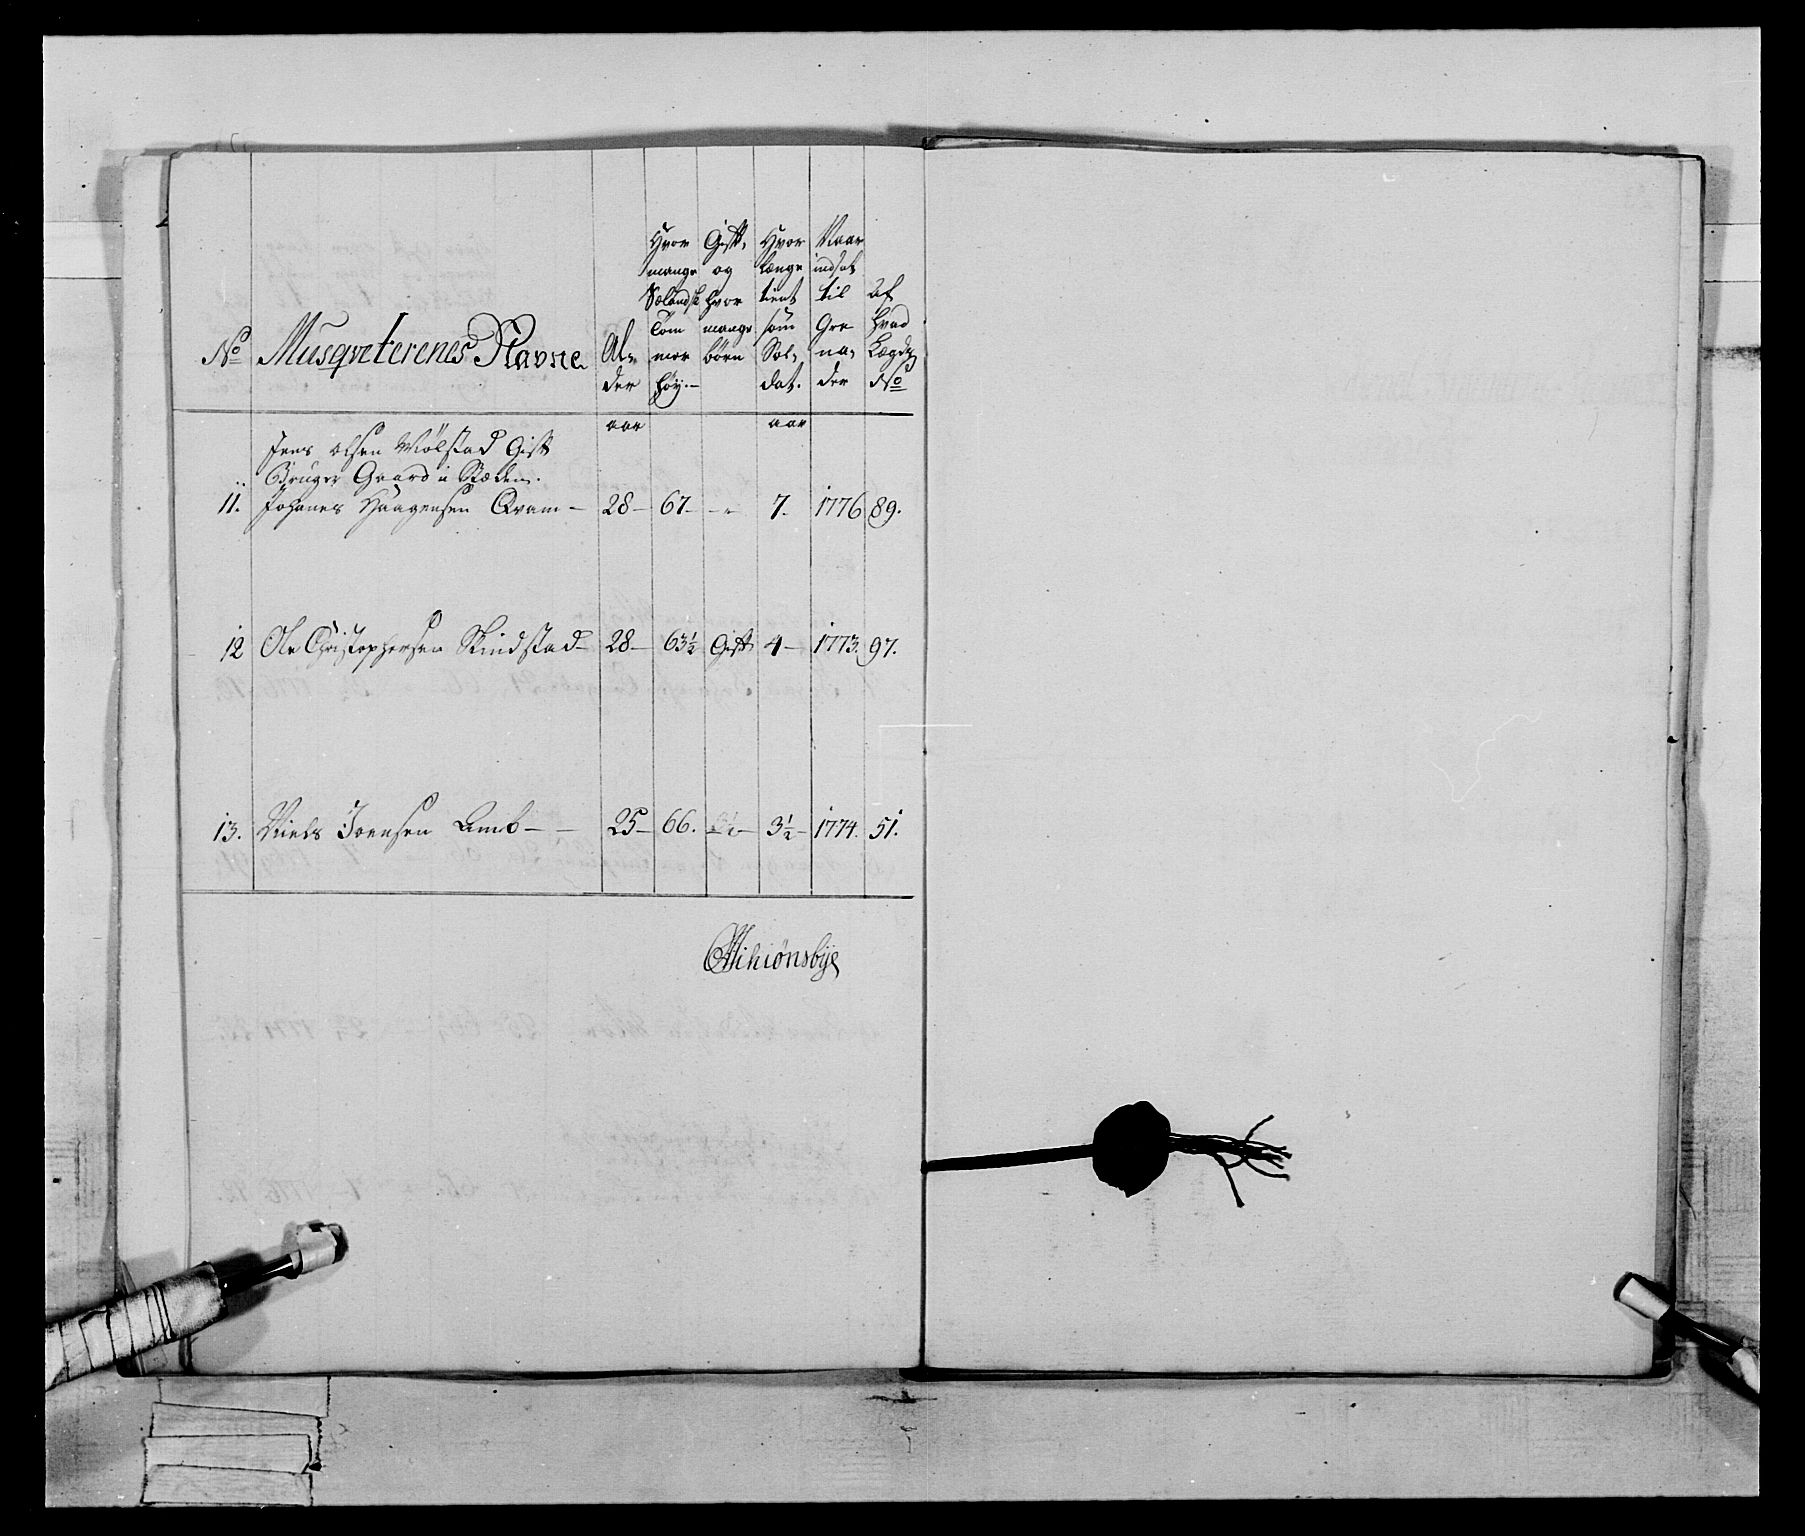 No Musqveterenes Navne Al- der
Hvor mange Sælandsk Tom mer höy.
Gift, og hvor mange börn
Hvor længe tient som Sol- dat.
Naar indsat til Gre na- der
Af hvad Lægd No
aar aar
Jens Olsen Mölstad Gift
Bruger Gaard i Stæden.
11. Johanes Haagensen Qvam - 28 - 67 - - " 7 - 1776 89.
12 Ole Christophersen Skindstad - 28 - 63½ Gift 4 - 1773. 97.
13. Niels Joensen Amb - - 25 - 66. 3½ - 1774. 51.